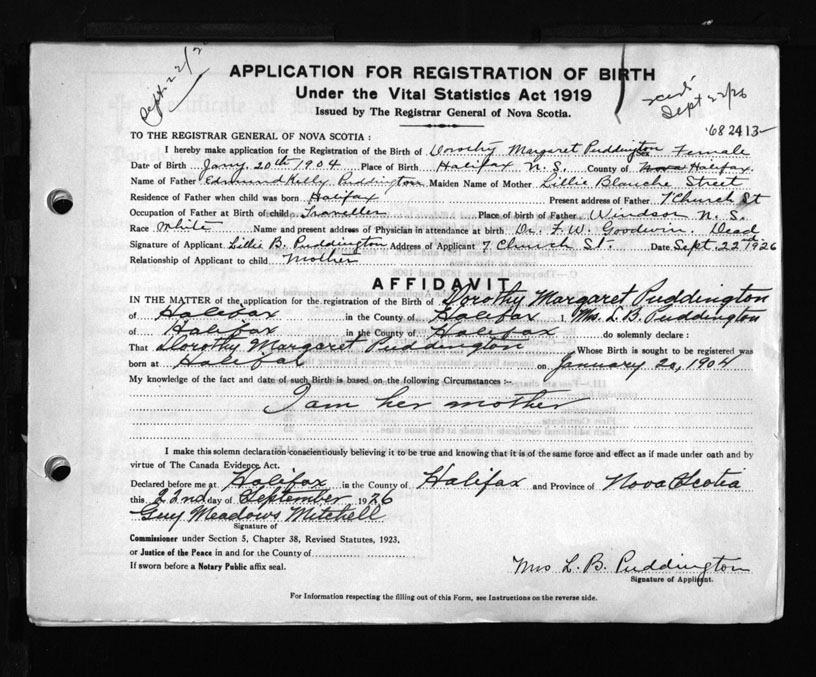 Sept. 22/2
APPLICATION FOR REGISTRATION OF BIRTH
Under the Vital Statistics Act 1919
Issued by The Registrar General of Nova Scotia.
recd. Sept 22/26
68 2413
TO THE REGISTRAR GENERAL OF NOVA SCOTIA :
I hereby make application for the Registration of the Birth of Dorothy Margaret Puddington Female
Date of Birth Jany. 20th 1904 Place of Birth Halifax N.S. County of Halifax
Name of Father Edmund Kelly Puddington Maiden Name of Mother Lillie Blanche Street
Residence of Father when child was born Halifax Present address of Father 7 Church St
Occupation of Father at Birth of child Traveller Place of birth of Father Windsor N.S.
Race White Name and present address of Physician in attendance at birth Dr. F. W. Goodwin. Dead
Signature of Applicant Lillie B. Puddington Address of Applicant 7 Church St. Date Sept. 22nd 1926
Relationship of Applicant to child Mother
AFFIDAVIT
IN THE MATTER of the application for the registration of the Birth of Dorothy Margaret Puddington
of Halifax in the County of Halifax I, Mrs. L. B. Puddington
of Halifax in the County of Halifax do solemnly declare :
That Dorothy Margaret Puddington Whose Birth is sought to be registered was
born at Halifax on January 20, 1904
My knowledge of the fact and date of such Birth is based on the following Circumstances :-
I am her mother
I make this solemn declaration conscientiously believing it to be true and knowing that it is of the same force and effect as if made under oath and by
virtue of The Canada Evidence Act.
Declared before me at Halifax in the County of Halifax and Province of Nova Scotia
this 22nd day of September 1926
Guy Meadows Mitchell
Signature of
Commissioner under Section 5, Chapter 38, Revised Statutes, 1923.
or Justice of the Peace in and for the County of
If sworn before a Notary Public affix seal.
Mrs L. B. Puddington
Signature of Applicant.
For Information respecting the filling out of this Form, see Instructions on the reverse side.